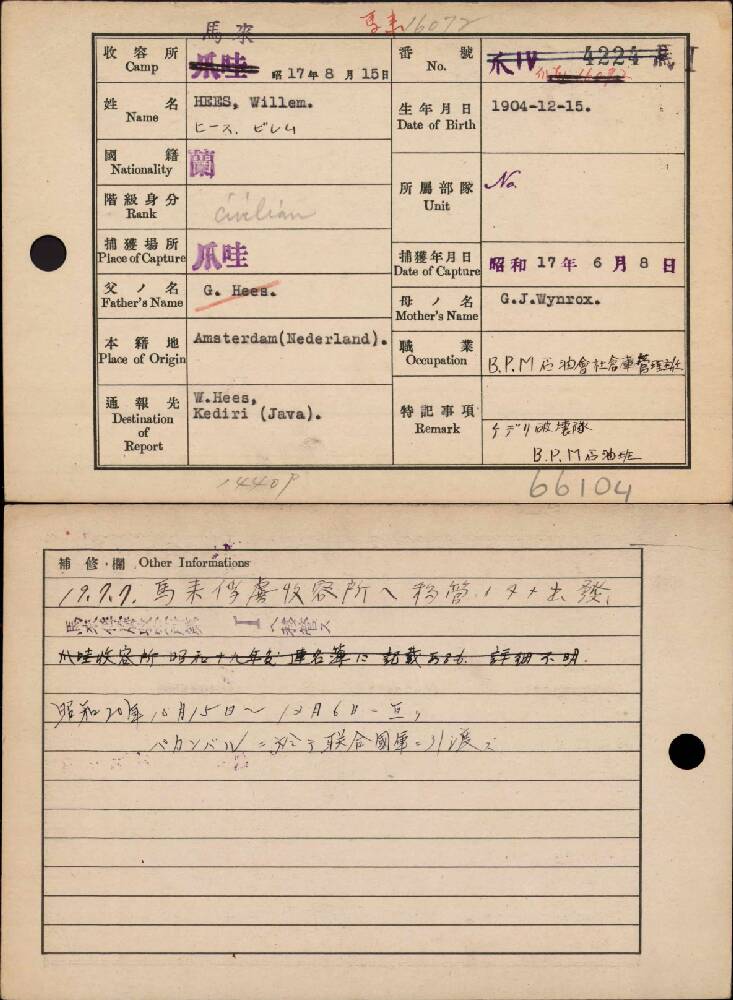 馬来16072
馬來
收容所 Camp 爪哇 昭17年8月15日
番號 No. 爪IV 4224 馬 I
姓名 Name HEES, Willem.
ヒース、ビレム
生年月日 Date of Birth 1904-12-15.
國籍 Nationality 蘭
階級身分 Rank civilian
所屬部隊 Unit No.
捕獲場所 Place of Capture 爪哇
捕獲年月日 Date of Capture 昭和17年6月8日
父ノ名 Father's Name G. Hees.
母ノ名 Mother's Name G.J.Wynrox.
本籍地 Place of Origin Amsterdam(Nederland).
職業 Occupation B.P.M石油會社倉庫管理班
通報先 Destination of Report W.Hees,
Kediri (Java).
特記事項 Remark ケデリ破壊隊
B.P.M石油班
1440P
66104
補修欄 Other Informations
19.7.7. 馬来俘虜收容所へ移管ノタメ出發
馬來俘虜收容所 I へ移管ス
爪哇收容所 昭和十九年 連名簿に記載あるも 詳細不明.
昭和20年10月15日〜12月6日ニ亘リ
パカンバルニ於テ聯合國軍ニ引渡ス